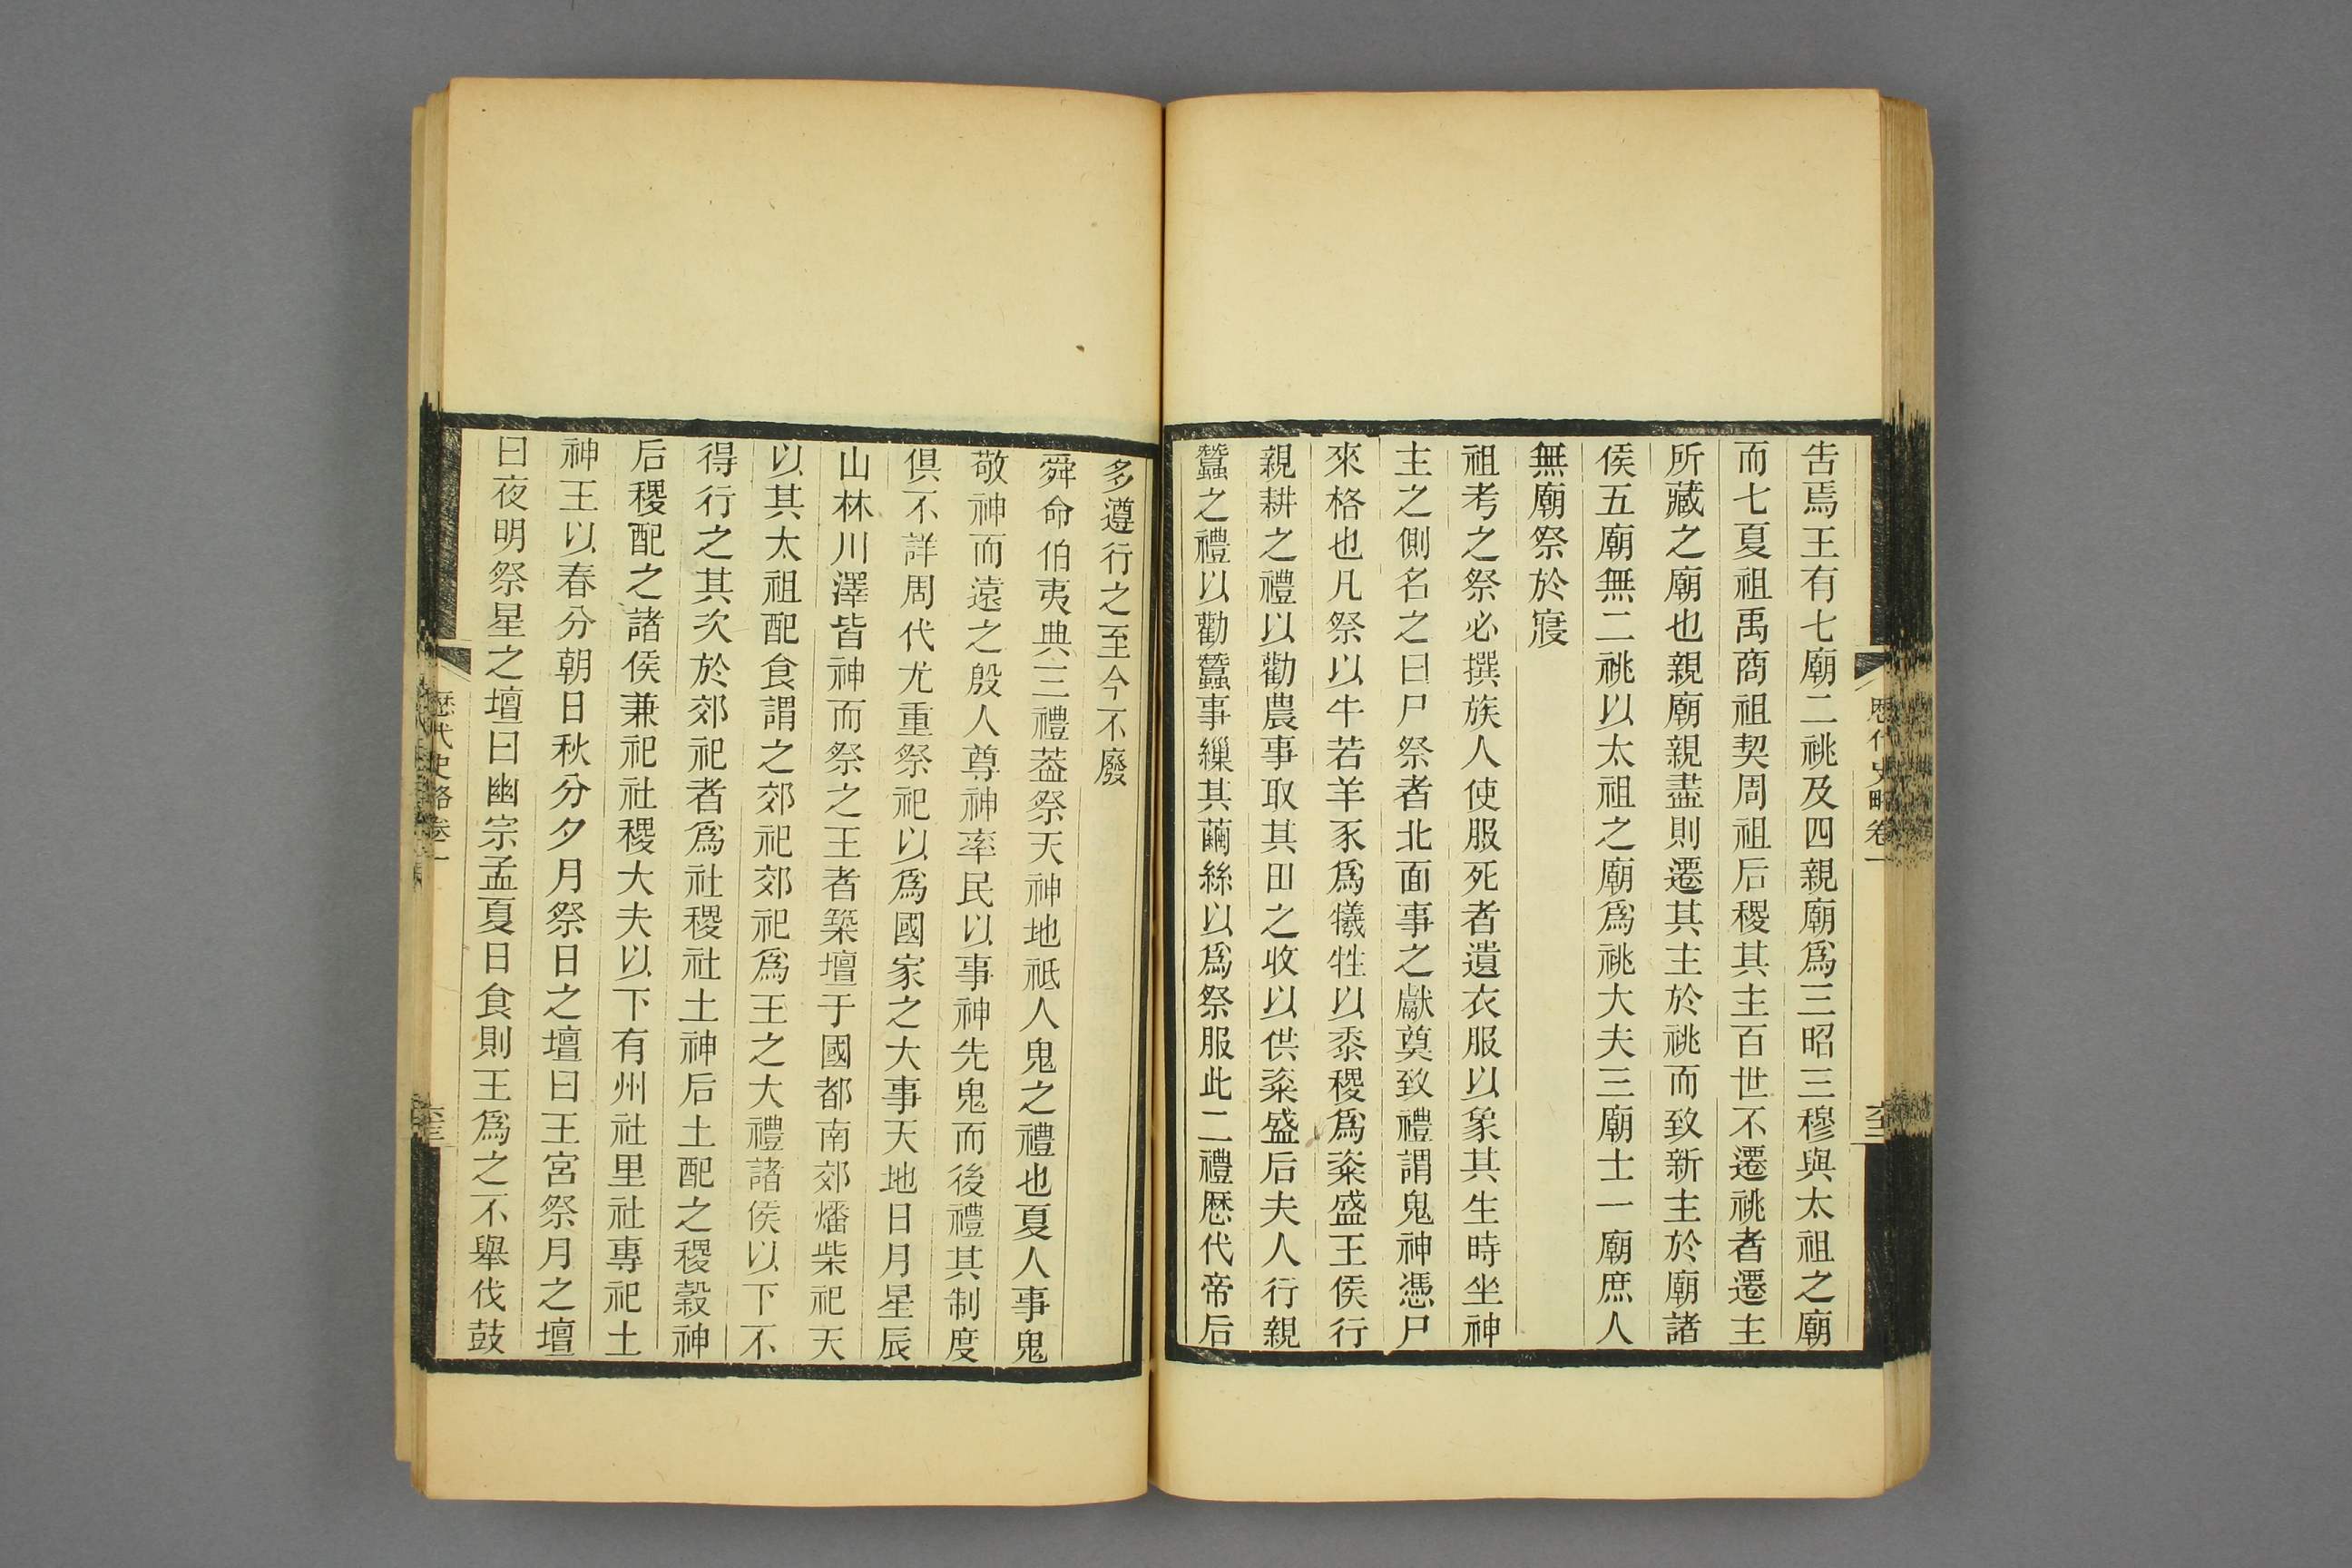 歷代史略卷一
六十二
告焉王有七廟二祧及四親廟爲三昭三穆與太祖之廟
而七夏祖禹商祖契周祖后稷其主百世不遷祧者遷主
所藏之廟也親廟親盡則遷其主於祧而致新主於廟諸
侯五廟無二祧以太祖之廟爲祧大夫三廟士一廟庶人
無廟祭於寢
祖考之祭必撰族人使服死者遺衣服以象其生時坐神
主之側名之曰尸祭者北面事之獻奠致禮謂鬼神憑尸
來格也凡祭以牛若羊豕爲犧牲以黍稷爲粢盛王侯行
親耕之禮以勸農事取其田之收以供粢盛后夫人行親
蠶之禮以勸蠶事繅其繭絲以爲祭服此二禮歷代帝后
多遵行之至今不廢
舜命伯夷典三禮葢祭天神地祇人鬼之禮也夏人事鬼
敬神而遠之殷人尊神率民以事神先鬼而後禮其制度
俱不詳周代尤重祭祀以爲國家之大事天地日月星辰
山林川澤皆神而祭之王者築壇于國都南郊燔柴祀天
以其太祖配食謂之郊祀郊祀爲王之大禮諸侯以下不
得行之其次於郊祀者爲社稷社土神后土配之稷穀神
后稷配之諸侯兼祀社稷大夫以下有州社里社專祀土
神王以春分朝日秋分夕月祭日之壇曰王宮祭月之壇
曰夜明祭星之壇曰幽宗孟夏日食則王爲之不舉伐鼓
歷代史略卷一
六十三